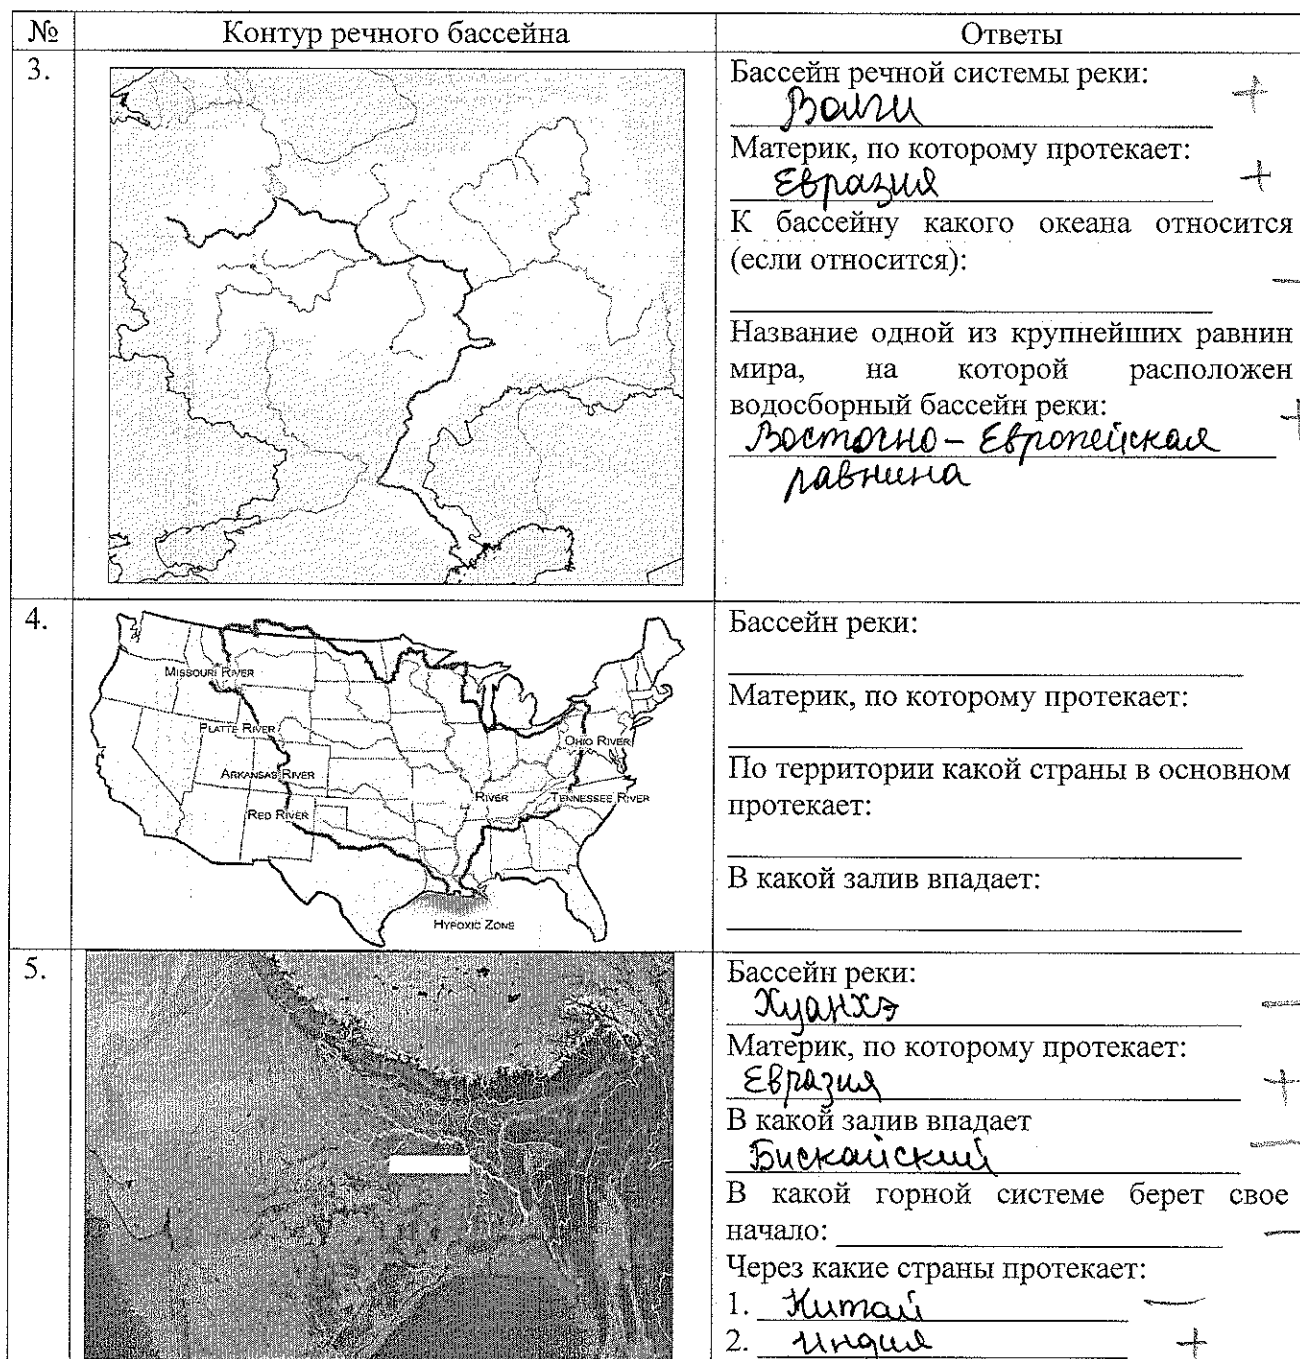 № Контур речного бассейна Ответы
3.
Бассейн речной системы реки:
Волги +
Материк, по которому протекает:
Евразия +
К бассейну какого океана относится
(если относится):
—
Название одной из крупнейших равнин
мира, на которой расположен
водосборный бассейн реки:
Восточно-Европейская +
равнина
4.
MISSOURI RIVER
PLATTE RIVER
OHIO RIVER
ARKANSAS RIVER
RIVER
TENNESSEE RIVER
RED RIVER
HYPOXIC ZONE
Бассейн реки:
Материк, по которому протекает:
По территории какой страны в основном
протекает:
В какой залив впадает:
5.
Бассейн реки:
Хуанхэ —
Материк, по которому протекает:
Евразия +
В какой залив впадает
Бискайский —
В какой горной системе берет свое
начало: —
Через какие страны протекает:
1. Китай —
2. Индия +